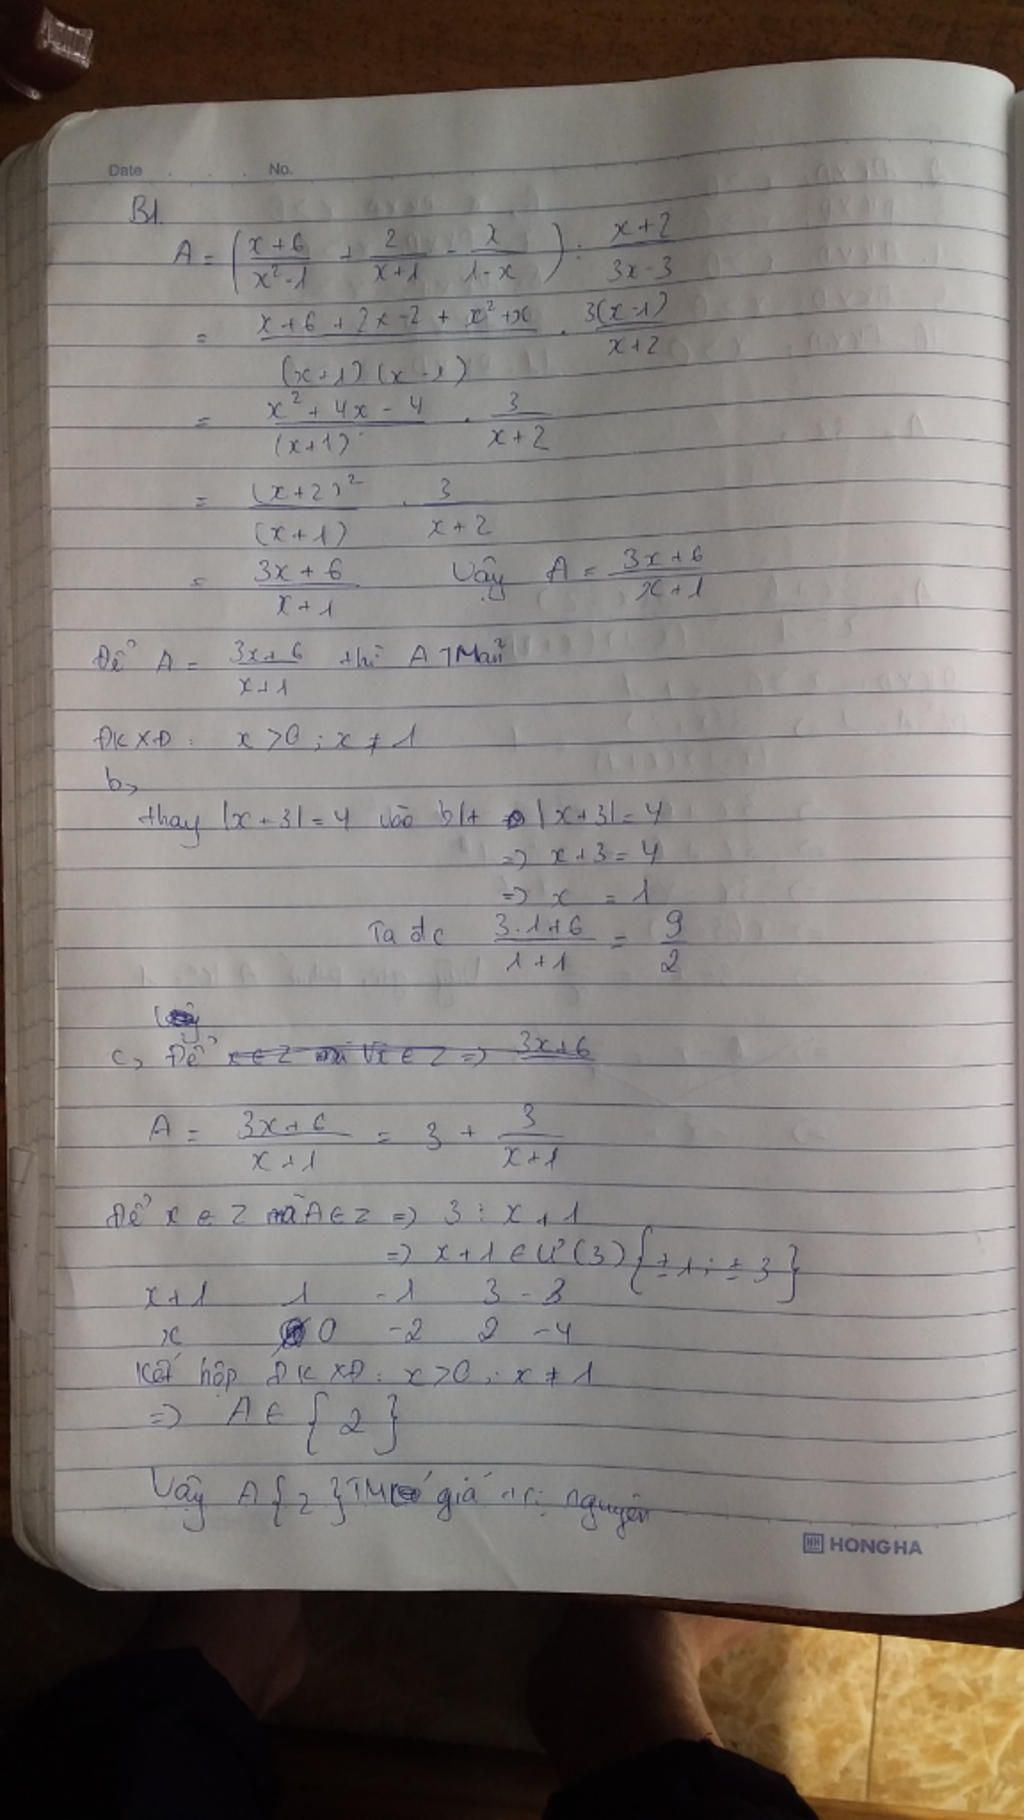 Date . . . No.
B1.
A = ( x+6 / x²-1 + 2 / x+1 - x / 1-x ) : x+2 / 3x-3
= x+6+2x-2+x²+x / (x+1)(x-1) . 3(x-1) / x+2
= x²+4x-4 / (x+1) . 3 / x+2
= (x+2)² / (x+1) . 3 / x+2
= 3x+6 / x+1 Vậy A = 3x+6 / x+1
Để A = 3x+6 / x+1 thì A TMãn
ĐKXĐ: x>0; x≠1
b,
thay |x+3|=4 vào b|t |x+3|=4
=> x+3=4
=> x = 1
Ta đc 3.1+6 / 1+1 = 9 / 2
c, Để x∈Z mà Vx∈Z => 3x+6
A = 3x+6 / x+1 = 3 + 3 / x+1
Để x∈Z mà A∈Z => 3 ⋮ x+1
=> x+1 ∈ Ư(3) {±1; ±3}
x+1 1 -1 3 -3
x 0 -2 2 -4
Kết hợp ĐKXĐ: x>0; x≠1
=> A∈ {2}
Vậy A {2} TM giá trị nguyên
HH HONG HA